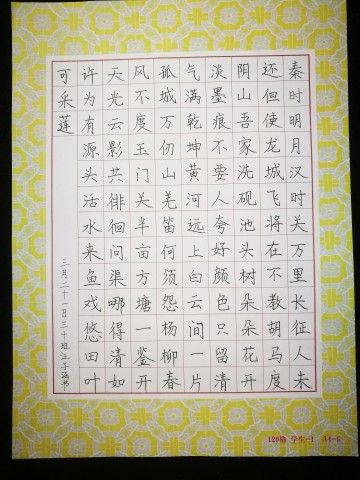 秦时明月汉时关万里长征人未
还但使龙城飞将在不教胡马度
阴山吾家洗砚池头树朵朵花开
淡墨痕不要人夸好颜色只留清
气满乾坤黄河远上白云间一片
孤城万仞山羌笛何须怨杨柳春
风不度玉门关半亩方塘一鉴开
天光云影共徘徊问渠哪得清如
许为有源头活水来鱼戏悠田叶
可采莲
三月二十一日三十班汪子涵书
128格 学生-1 A4-5